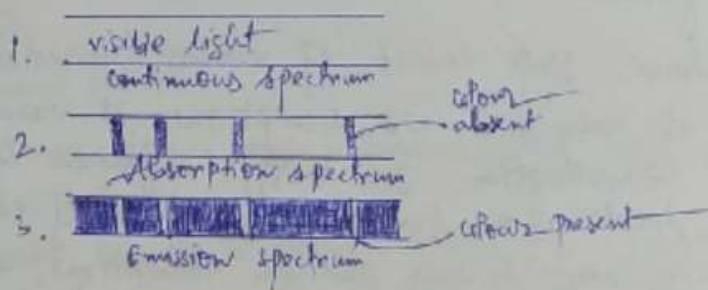 1. visible light
continuous spectrum
colour absent
2.
Absorption spectrum
3.
colours present
Emission spectrum